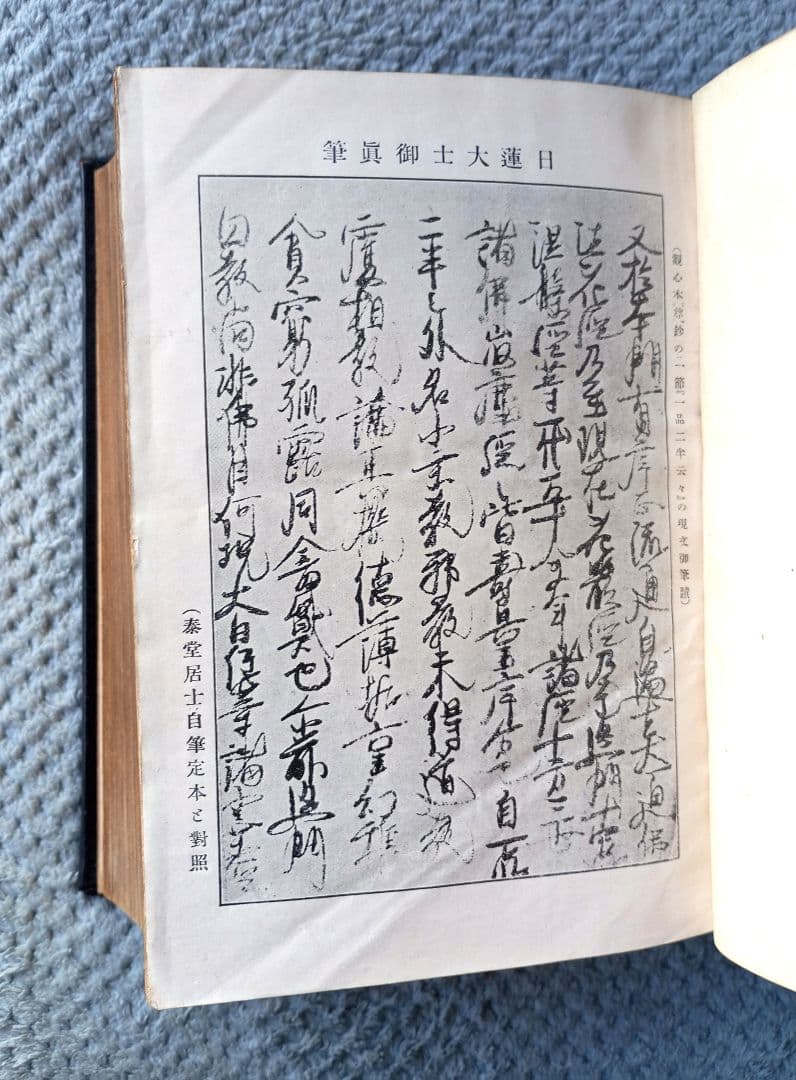 日蓮大士御眞筆
(觀心本尊鈔の一節『一品二半云々』の現文御筆蹟)
又於本門有序正流通自過去大通佛
法花経乃至現在花嚴経乃至迹門十四品
涅槃経等一代五十余年諸経十方三世
諸佛微塵経々皆壽量序分也自一品
二半之外名小乗教邪教未得道教
覆相教論其機德薄垢重幼稚
貧窮孤露同禽獸也尓前迹門
円教尚非佛因何況大日経等諸小乗経
(泰堂居士自筆定本と對照)